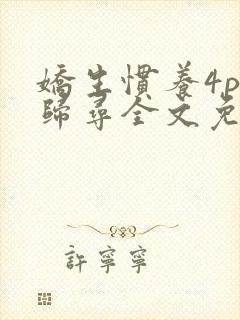 嬌生慣養4p
歸尋全文免
許寧寧